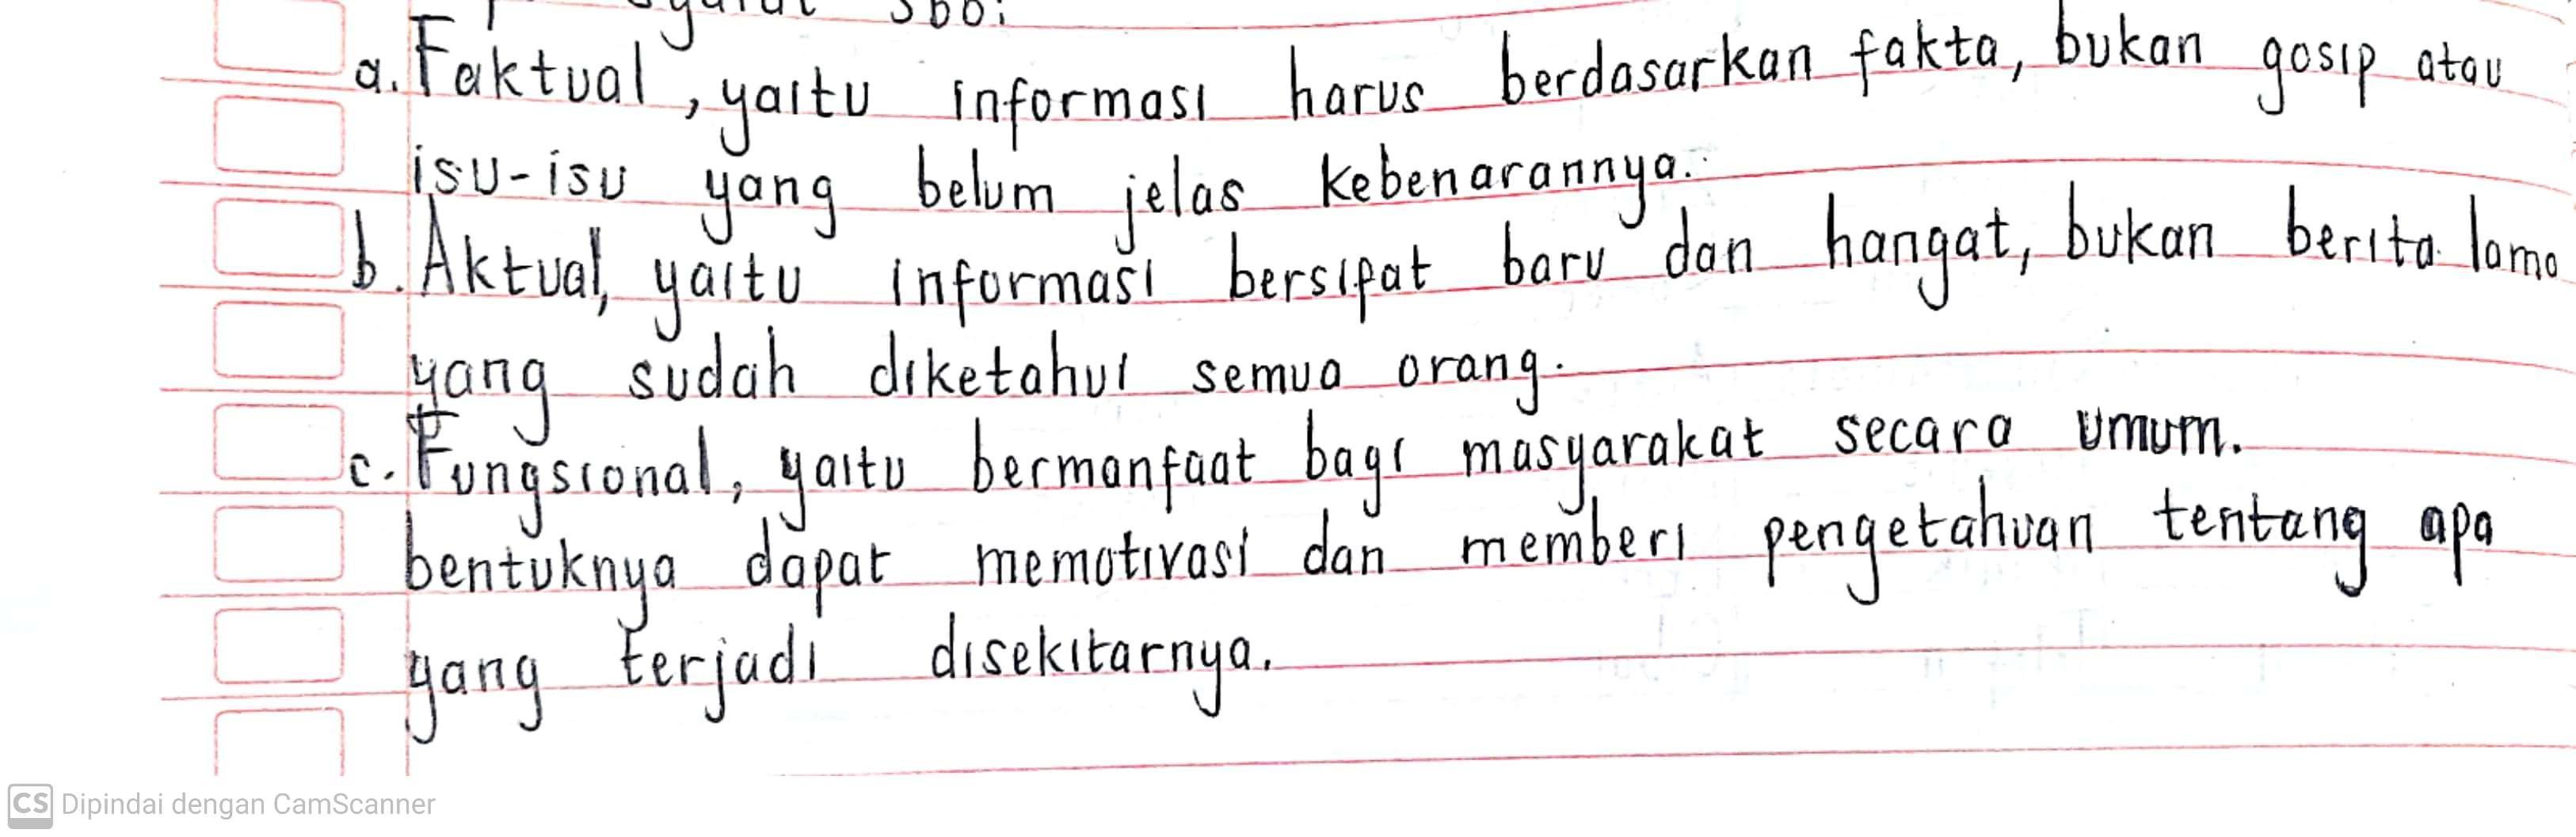 sbb:
a. Faktual, yaitu informasi harus berdasarkan fakta, bukan gosip atau
isu-isu yang belum jelas kebenarannya.
b. Aktual, yaitu informasi bersipat baru dan hangat, bukan berita lama
yang sudah diketahui semua orang.
c. Fungsional, yaitu bermanfaat bagi masyarakat secara umum.
bentuknya dapat memotivasi dan memberi pengetahuan tentang apa
yang terjadi disekitarnya.
CS Dipindai dengan CamScanner